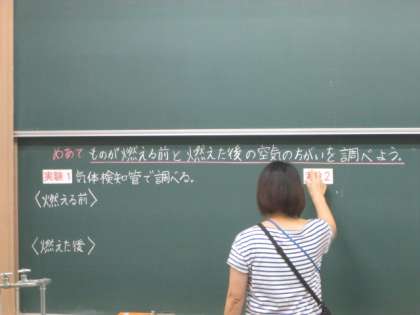 めあて ものが燃える前と燃えた後の空気のちがいを調べよう。
実験1 気体検知管で調べる。
実験2
〈燃える前〉
〈燃えた後〉